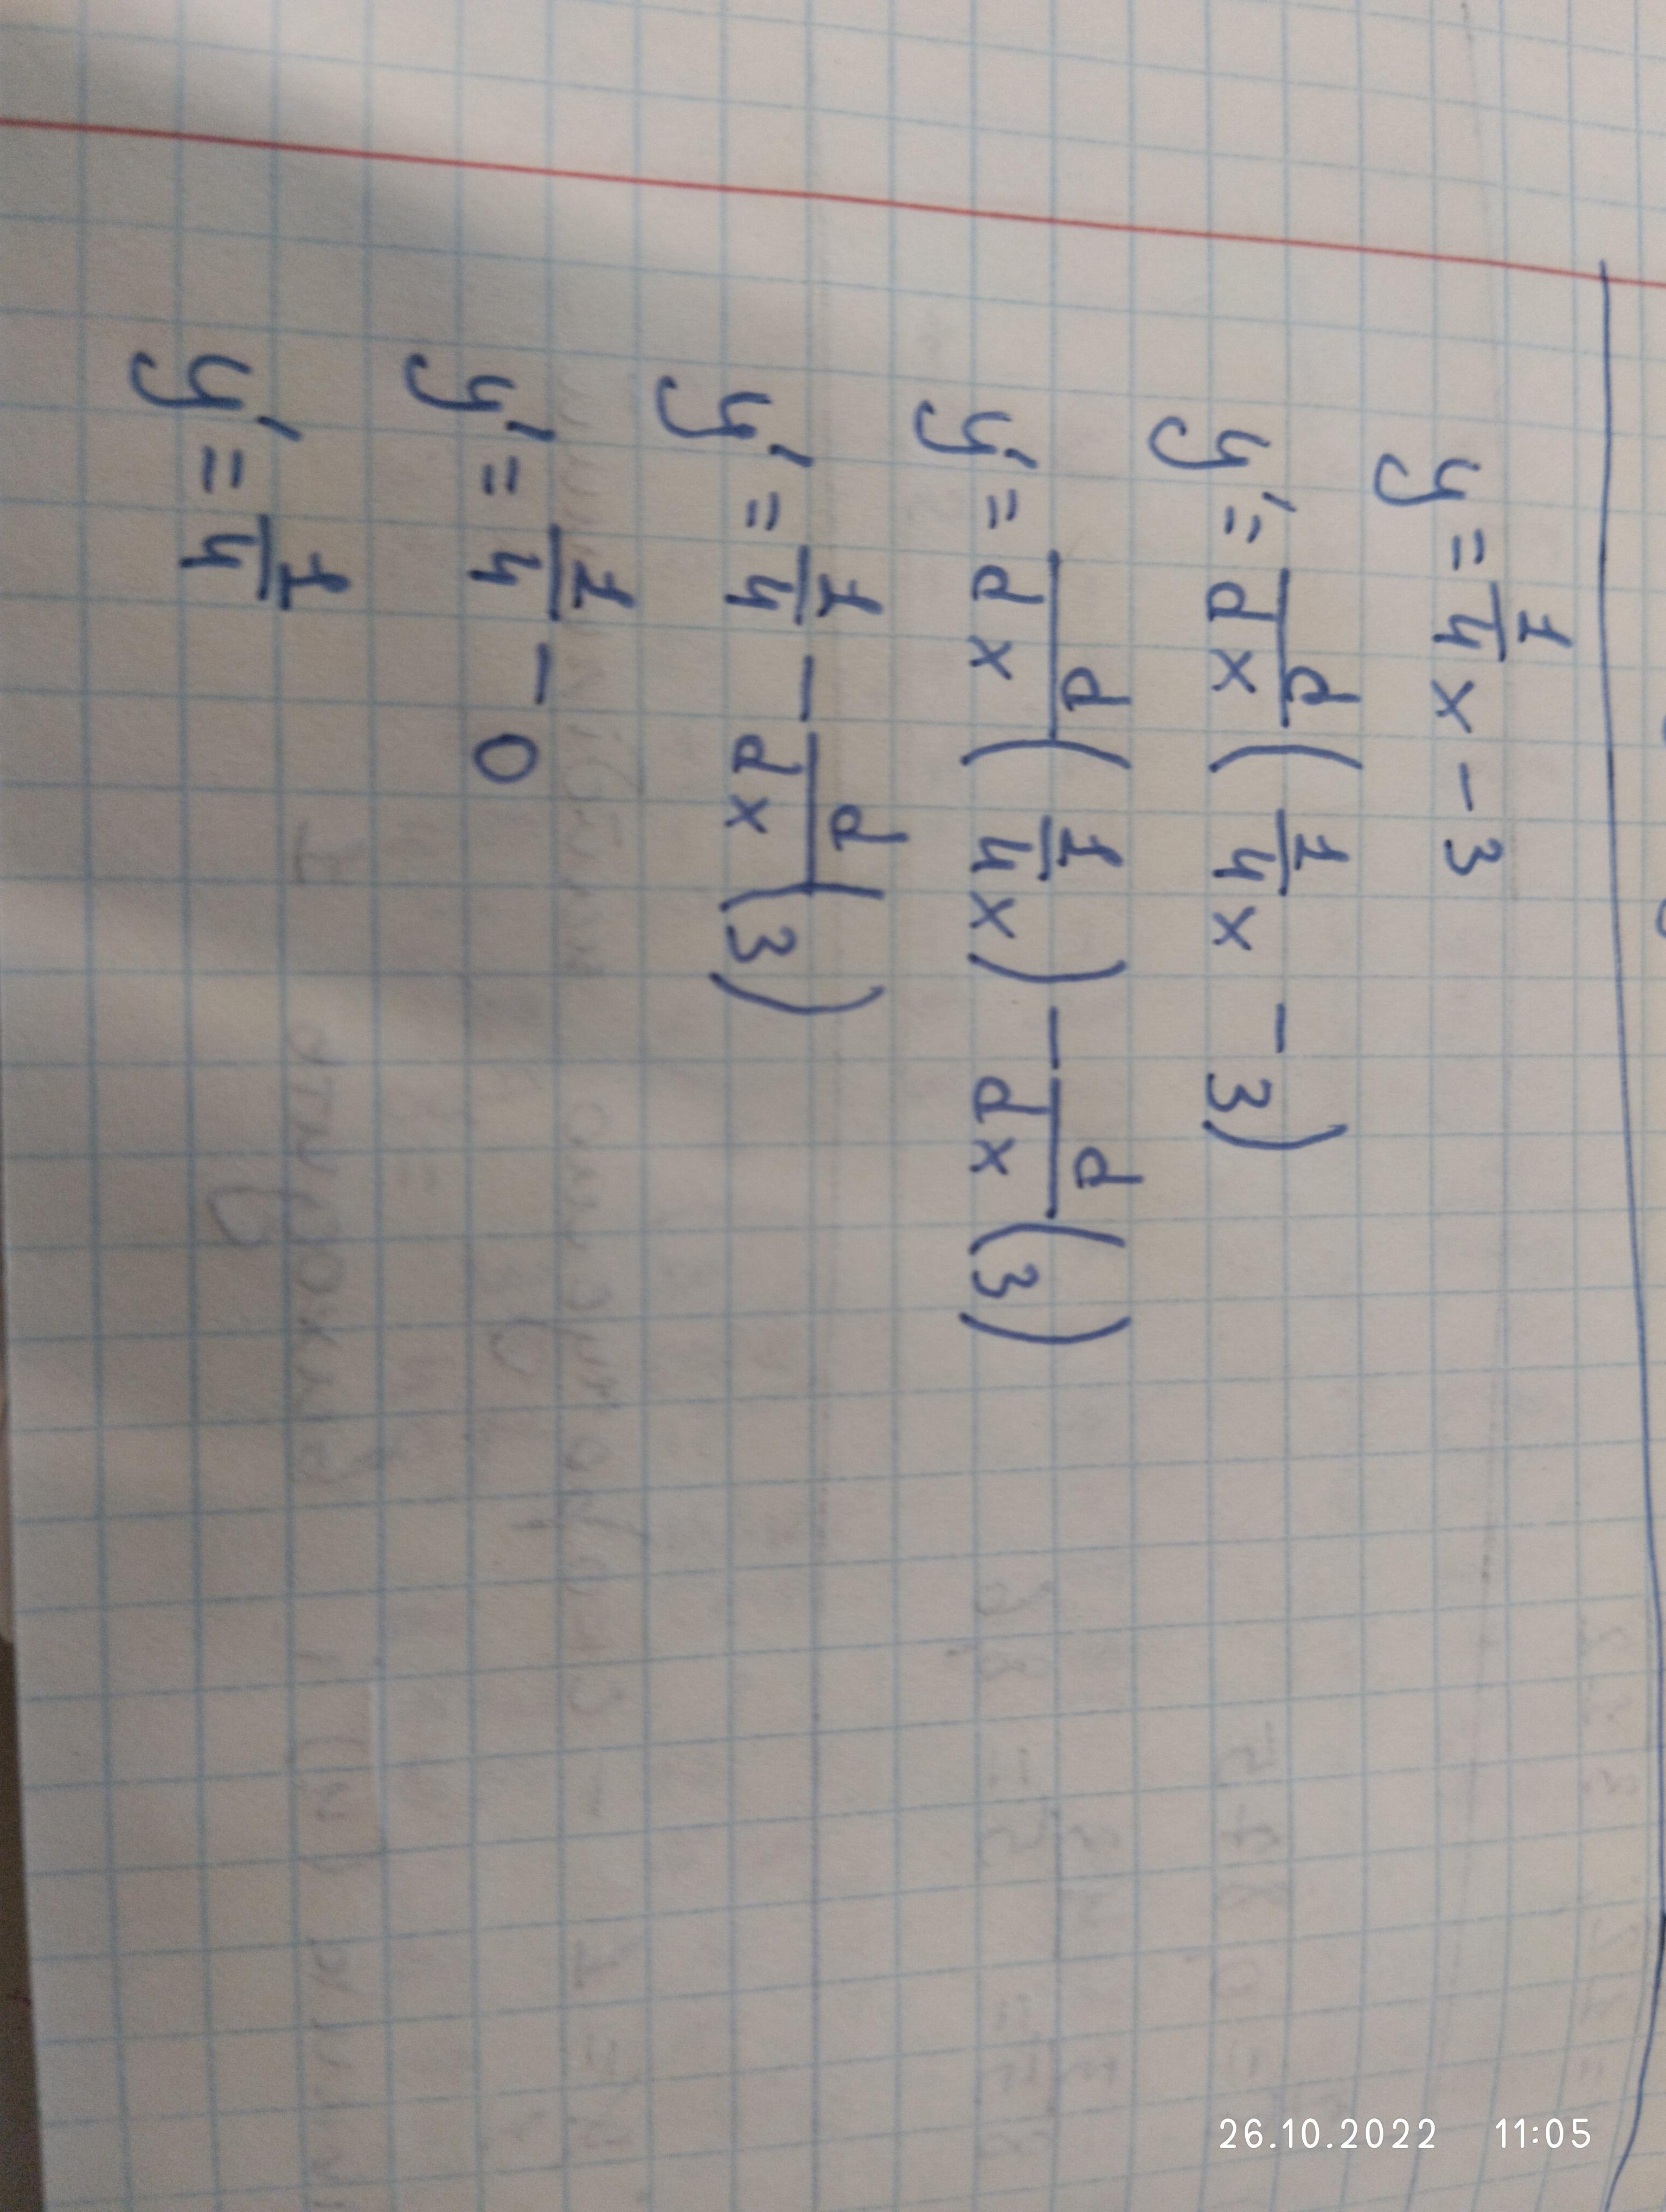 y = 1/4 x - 3
y' = d/dx (1/4 x - 3)
y' = d/dx (1/4 x) - d/dx (3)
y' = 1/4 - d/dx (3)
y' = 1/4 - 0
y' = 1/4
26.10.2022 11:05